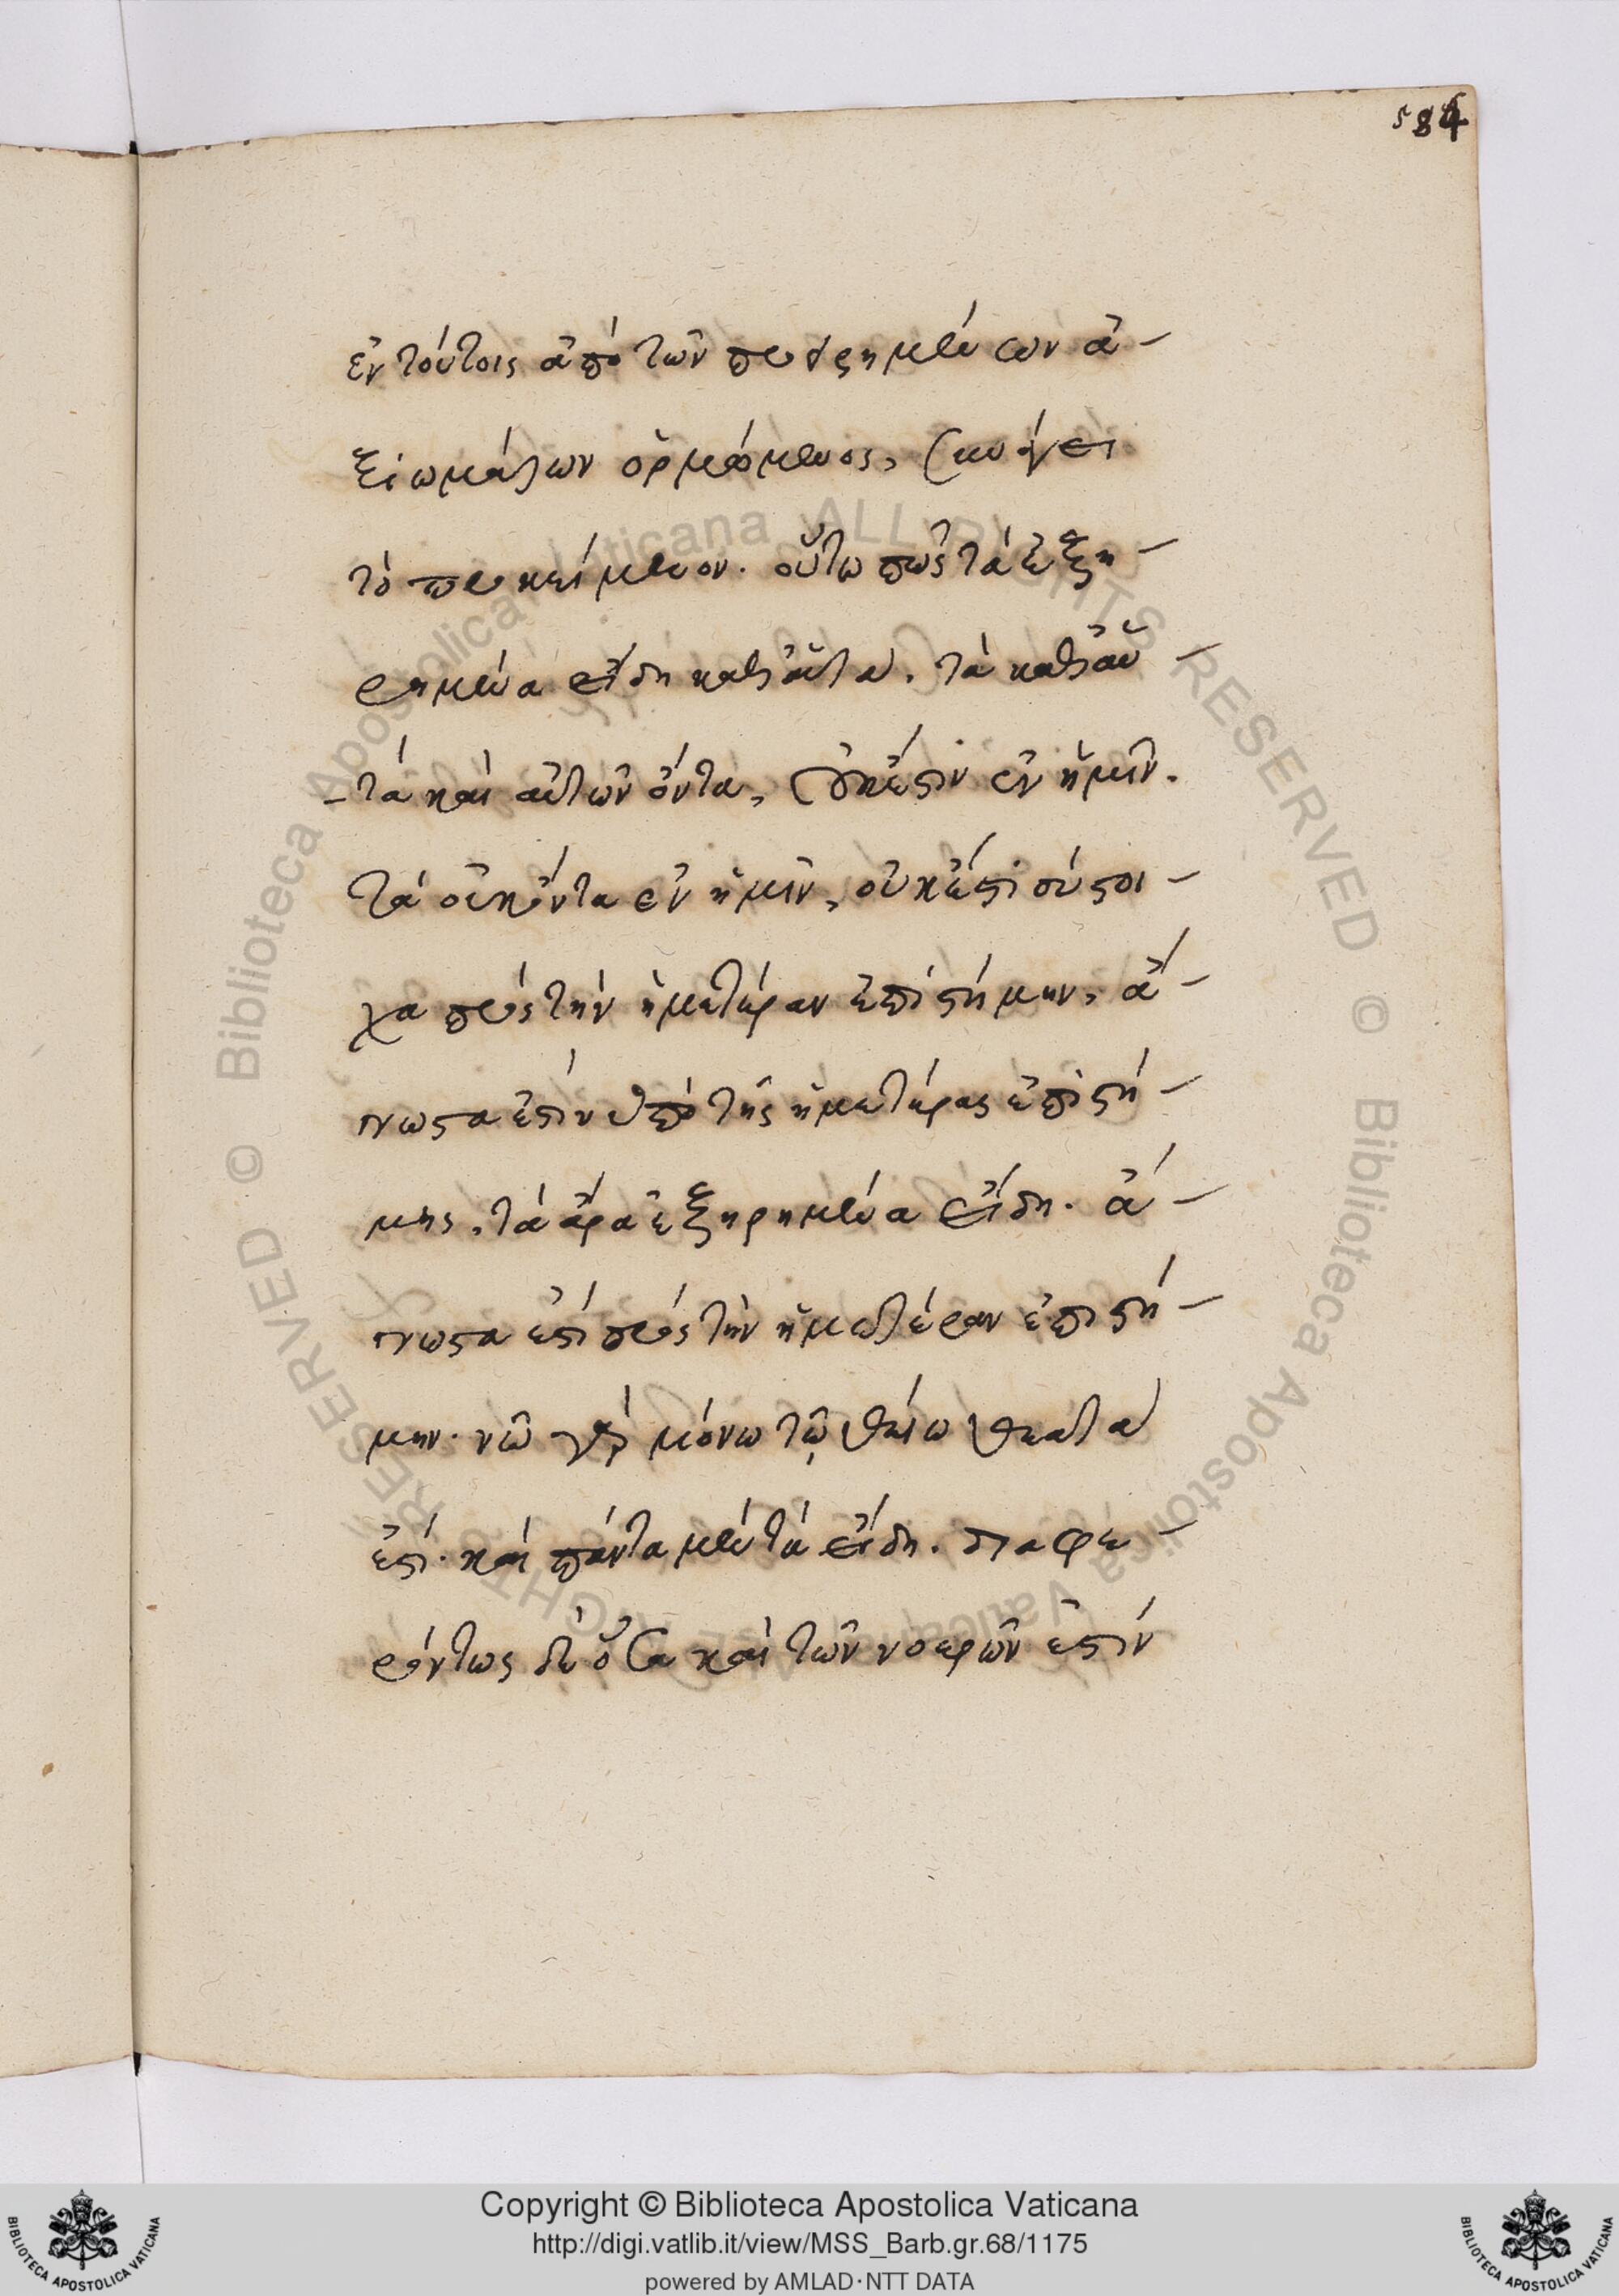 584
ἐν τούτοις ἀπὸ τῶν προειρημένων ἀ-
ξιωμάτων ὁρμώμενος, συνάγει
τὸ προκείμενον. οὕτω πως τὰ ἐξη-
ρημένα εἴδη καθ' αὑτά. τὰ καθ' αὑ-
-τὰ καὶ αὑτῶν ὄντα, οὐκ ἔστιν ἐν ἡμῖν.
τὰ οὐκ ὄντα ἐν ἡμῖν, οὐκ ἔστι σύστοι-
χα πρὸς τὴν ἡμετέραν ἐπιστήμην, ἄ-
γνωστα ἐστὶν ὑπὸ τῆς ἡμετέρας ἐπιστή-
μης. τὰ ἄρα ἐξηρημένα εἴδη. ἄ-
γνωστα ἐστὶ πρὸς τὴν ἡμετέραν ἐπιστή-
μην. νῷ γὰρ μόνῳ τῷ θείῳ θεατά
ἐστι. καὶ πάντα μὲν τὰ εἴδη. διαφε-
ρόντως δὲ ὅσα καὶ τῶν νοερῶν ἐστὶν
Copyright © Biblioteca Apostolica Vaticana
http://digi.vatlib.it/view/MSS_Barb.gr.68/1175
powered by AMLAD·NTT DATA
BIBLIOTECA APOSTOLICA VATICANA
BIBLIOTECA APOSTOLICA VATICANA